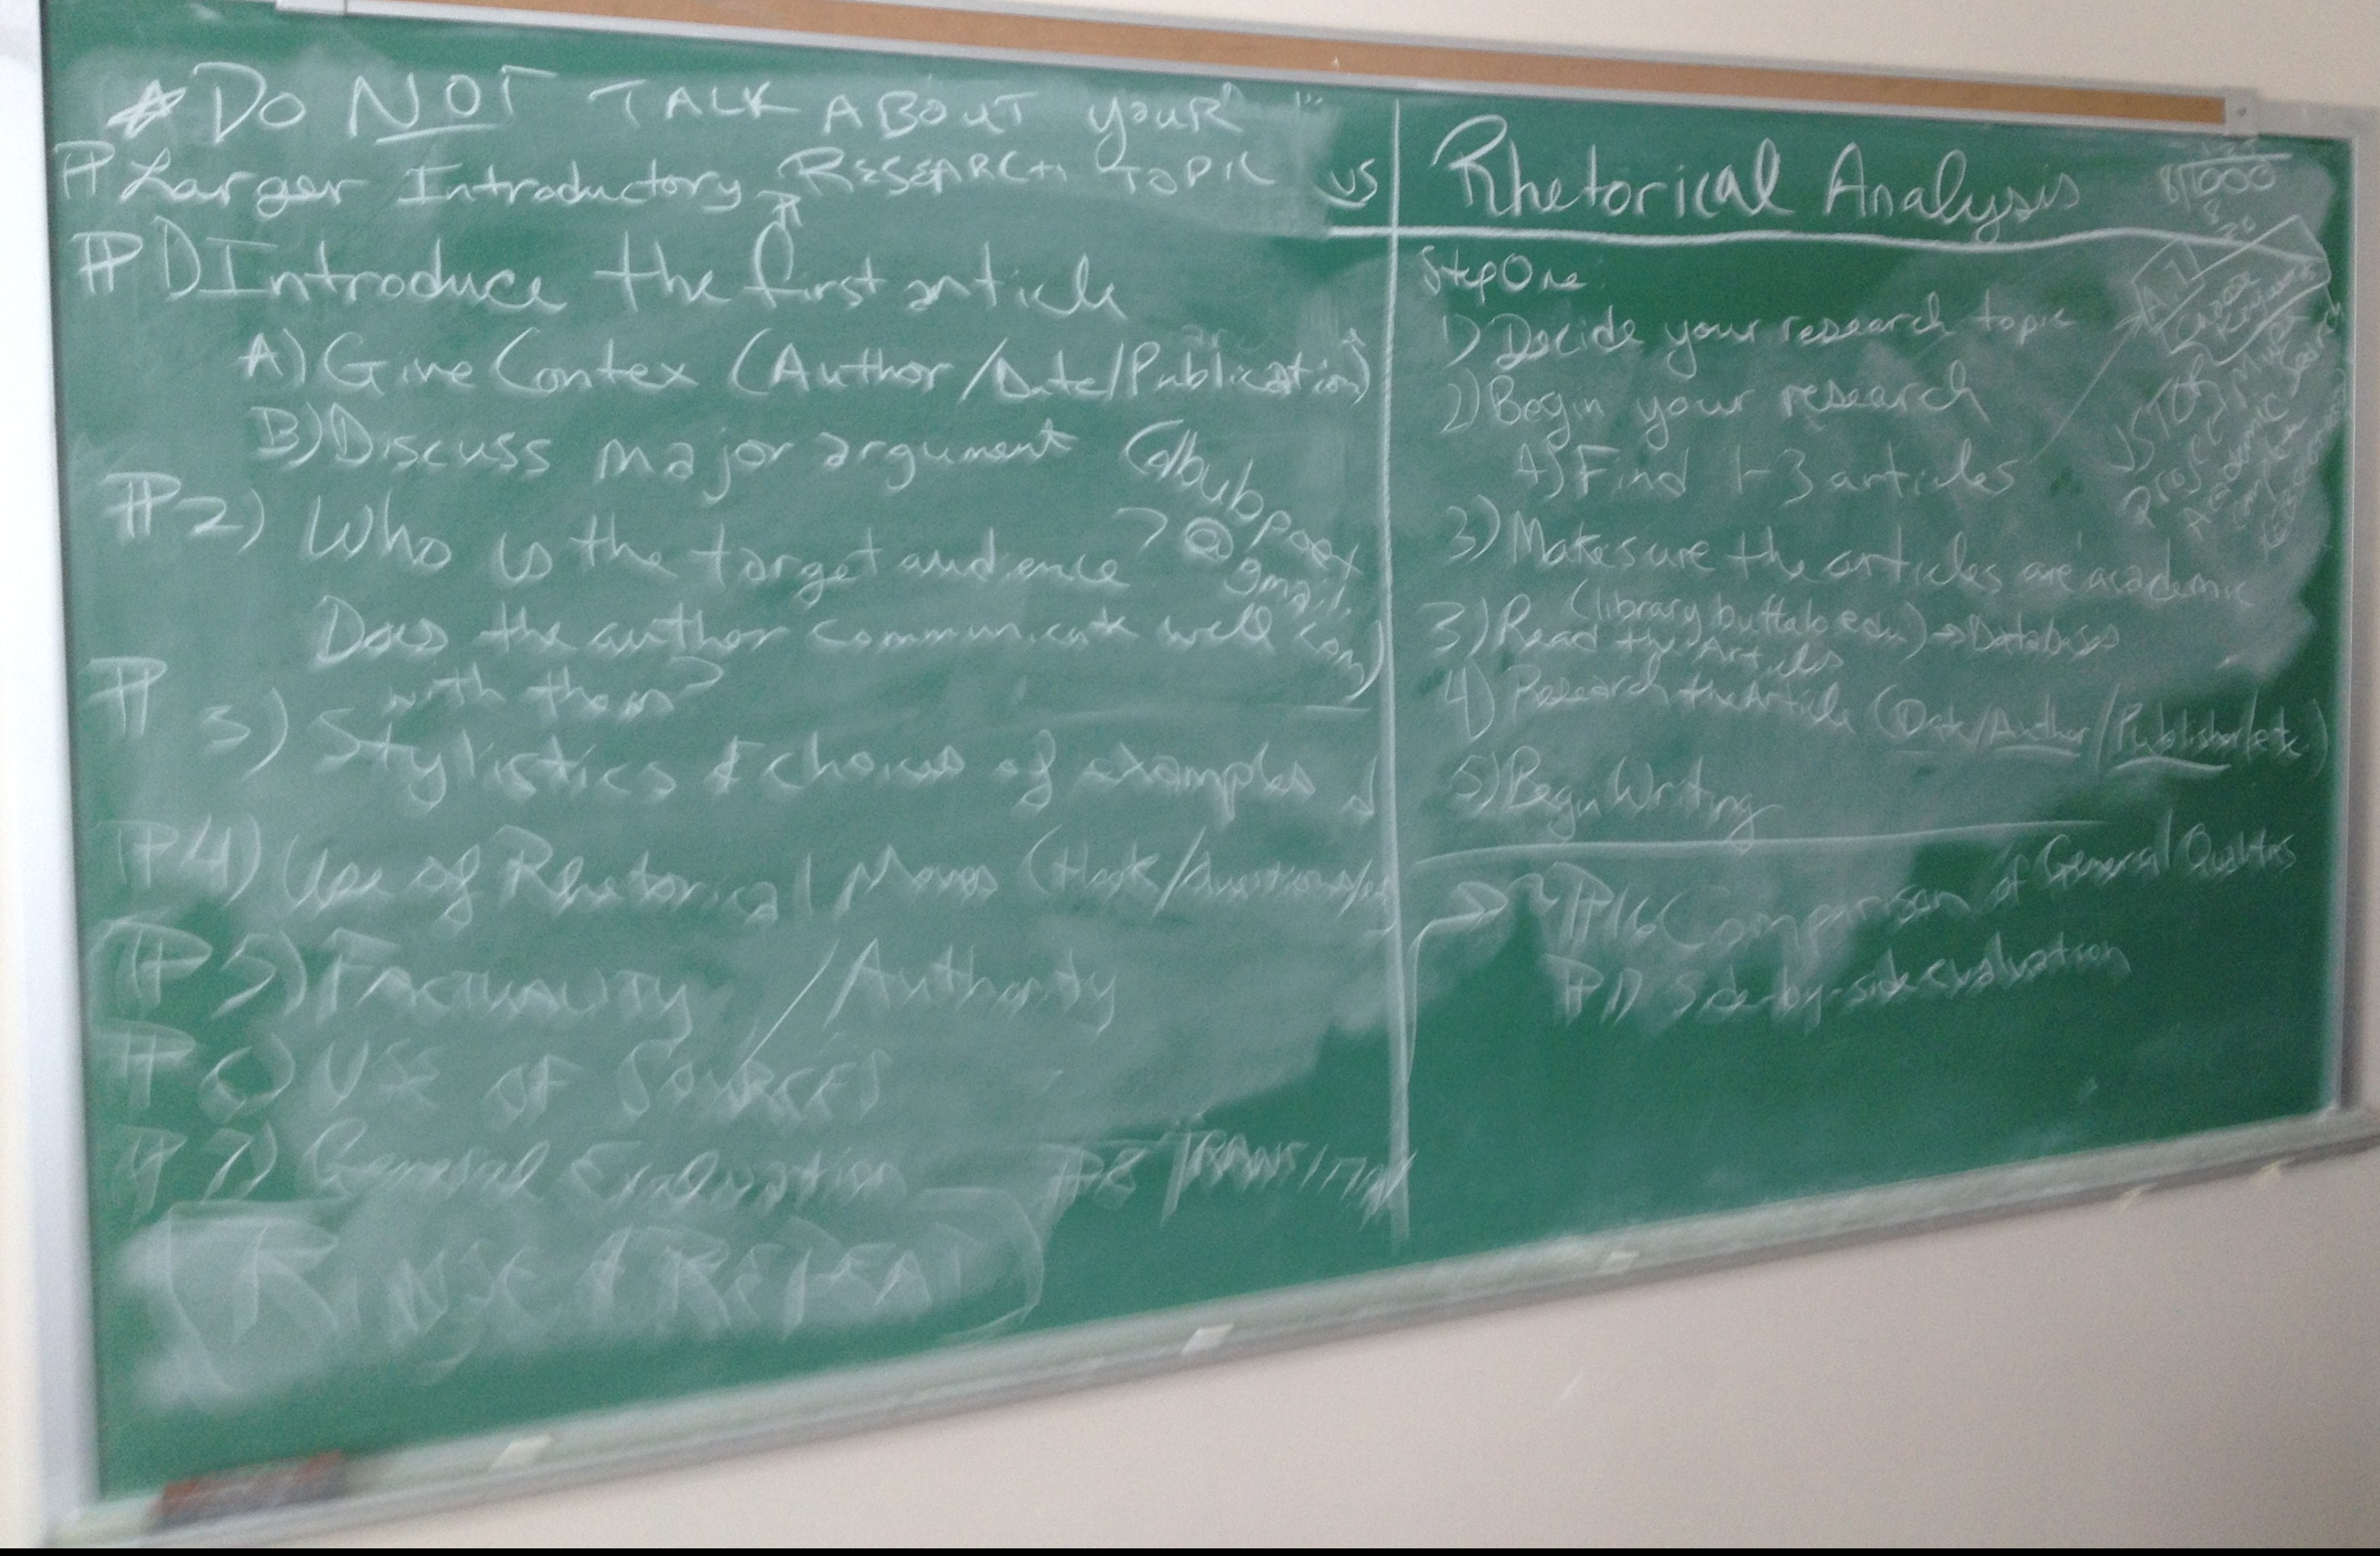 DO NOT TALK ABOUT YOUR
RESEARCH TOPIC
Larger Introductory
vs
1) Introduce the first article
A) Give Contex (Author/Date/Publication)
B) Discuss major argument
2) Who is the target audience?
Does the author communicate well
with them?
3) Stylistics & choices of examples
4) Use of Rhetorical Moves (Hook/Questions/
5) FACTUALITY / Authority
6) USE OF SOURCES
7) General Evaluation
8 TRANSITION
(RINSE & REPEAT)
@
gmail.
com)
Rhetorical Analysis
125
8 1000
8
20
Step One
1) Decide your research topic
2) Begin your research
A) Find 1-3 articles
A.1
Choose
JSTOR
Project Muse
Academic Search
Complete
3) Make sure the articles are academic
(library.buffalo.edu) → Databases
3) Read the Articles
4) Research the Article (Date/Author/Publisher/etc.)
5) Begin Writing
16 Comparison of General Qualities
17 Side-by-side evaluation